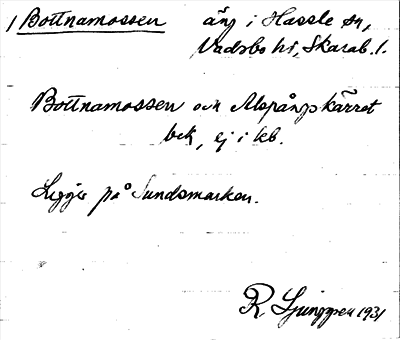 1 Bottnamossen äng i Hassle sn,
Vadsbo hd, Skarab. l.
Bottnamossen och Alspångskärret
bek, ej i kb.
Ligger på Sundsmarken.
R. Ljunggren 1931